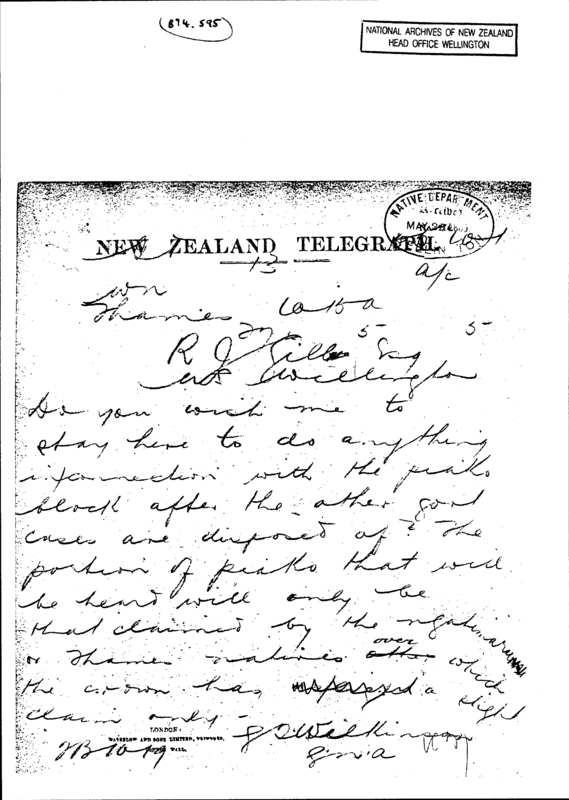 (B74.595)
NATIONAL ARCHIVES OF NEW ZEALAND
HEAD OFFICE WELLINGTON
NATIVE DEPARTMENT
NEW ZEALAND TELEGRAPH.
13
a/c
wn
Thames
5 5
R J Gill Esq
Wellington
Do you wish me to
stay here to do anything
in connection with the piako
block after the other govt
cases are disposed of? The
portion of piako that will
be heard will only be
that claimed by the ngatimaru
or Thames natives over which
the crown has a slight
claim only -
LONDON:
WATERLOW AND SONS LIMITED, PRINTERS,
WALL.
G Wilkinson